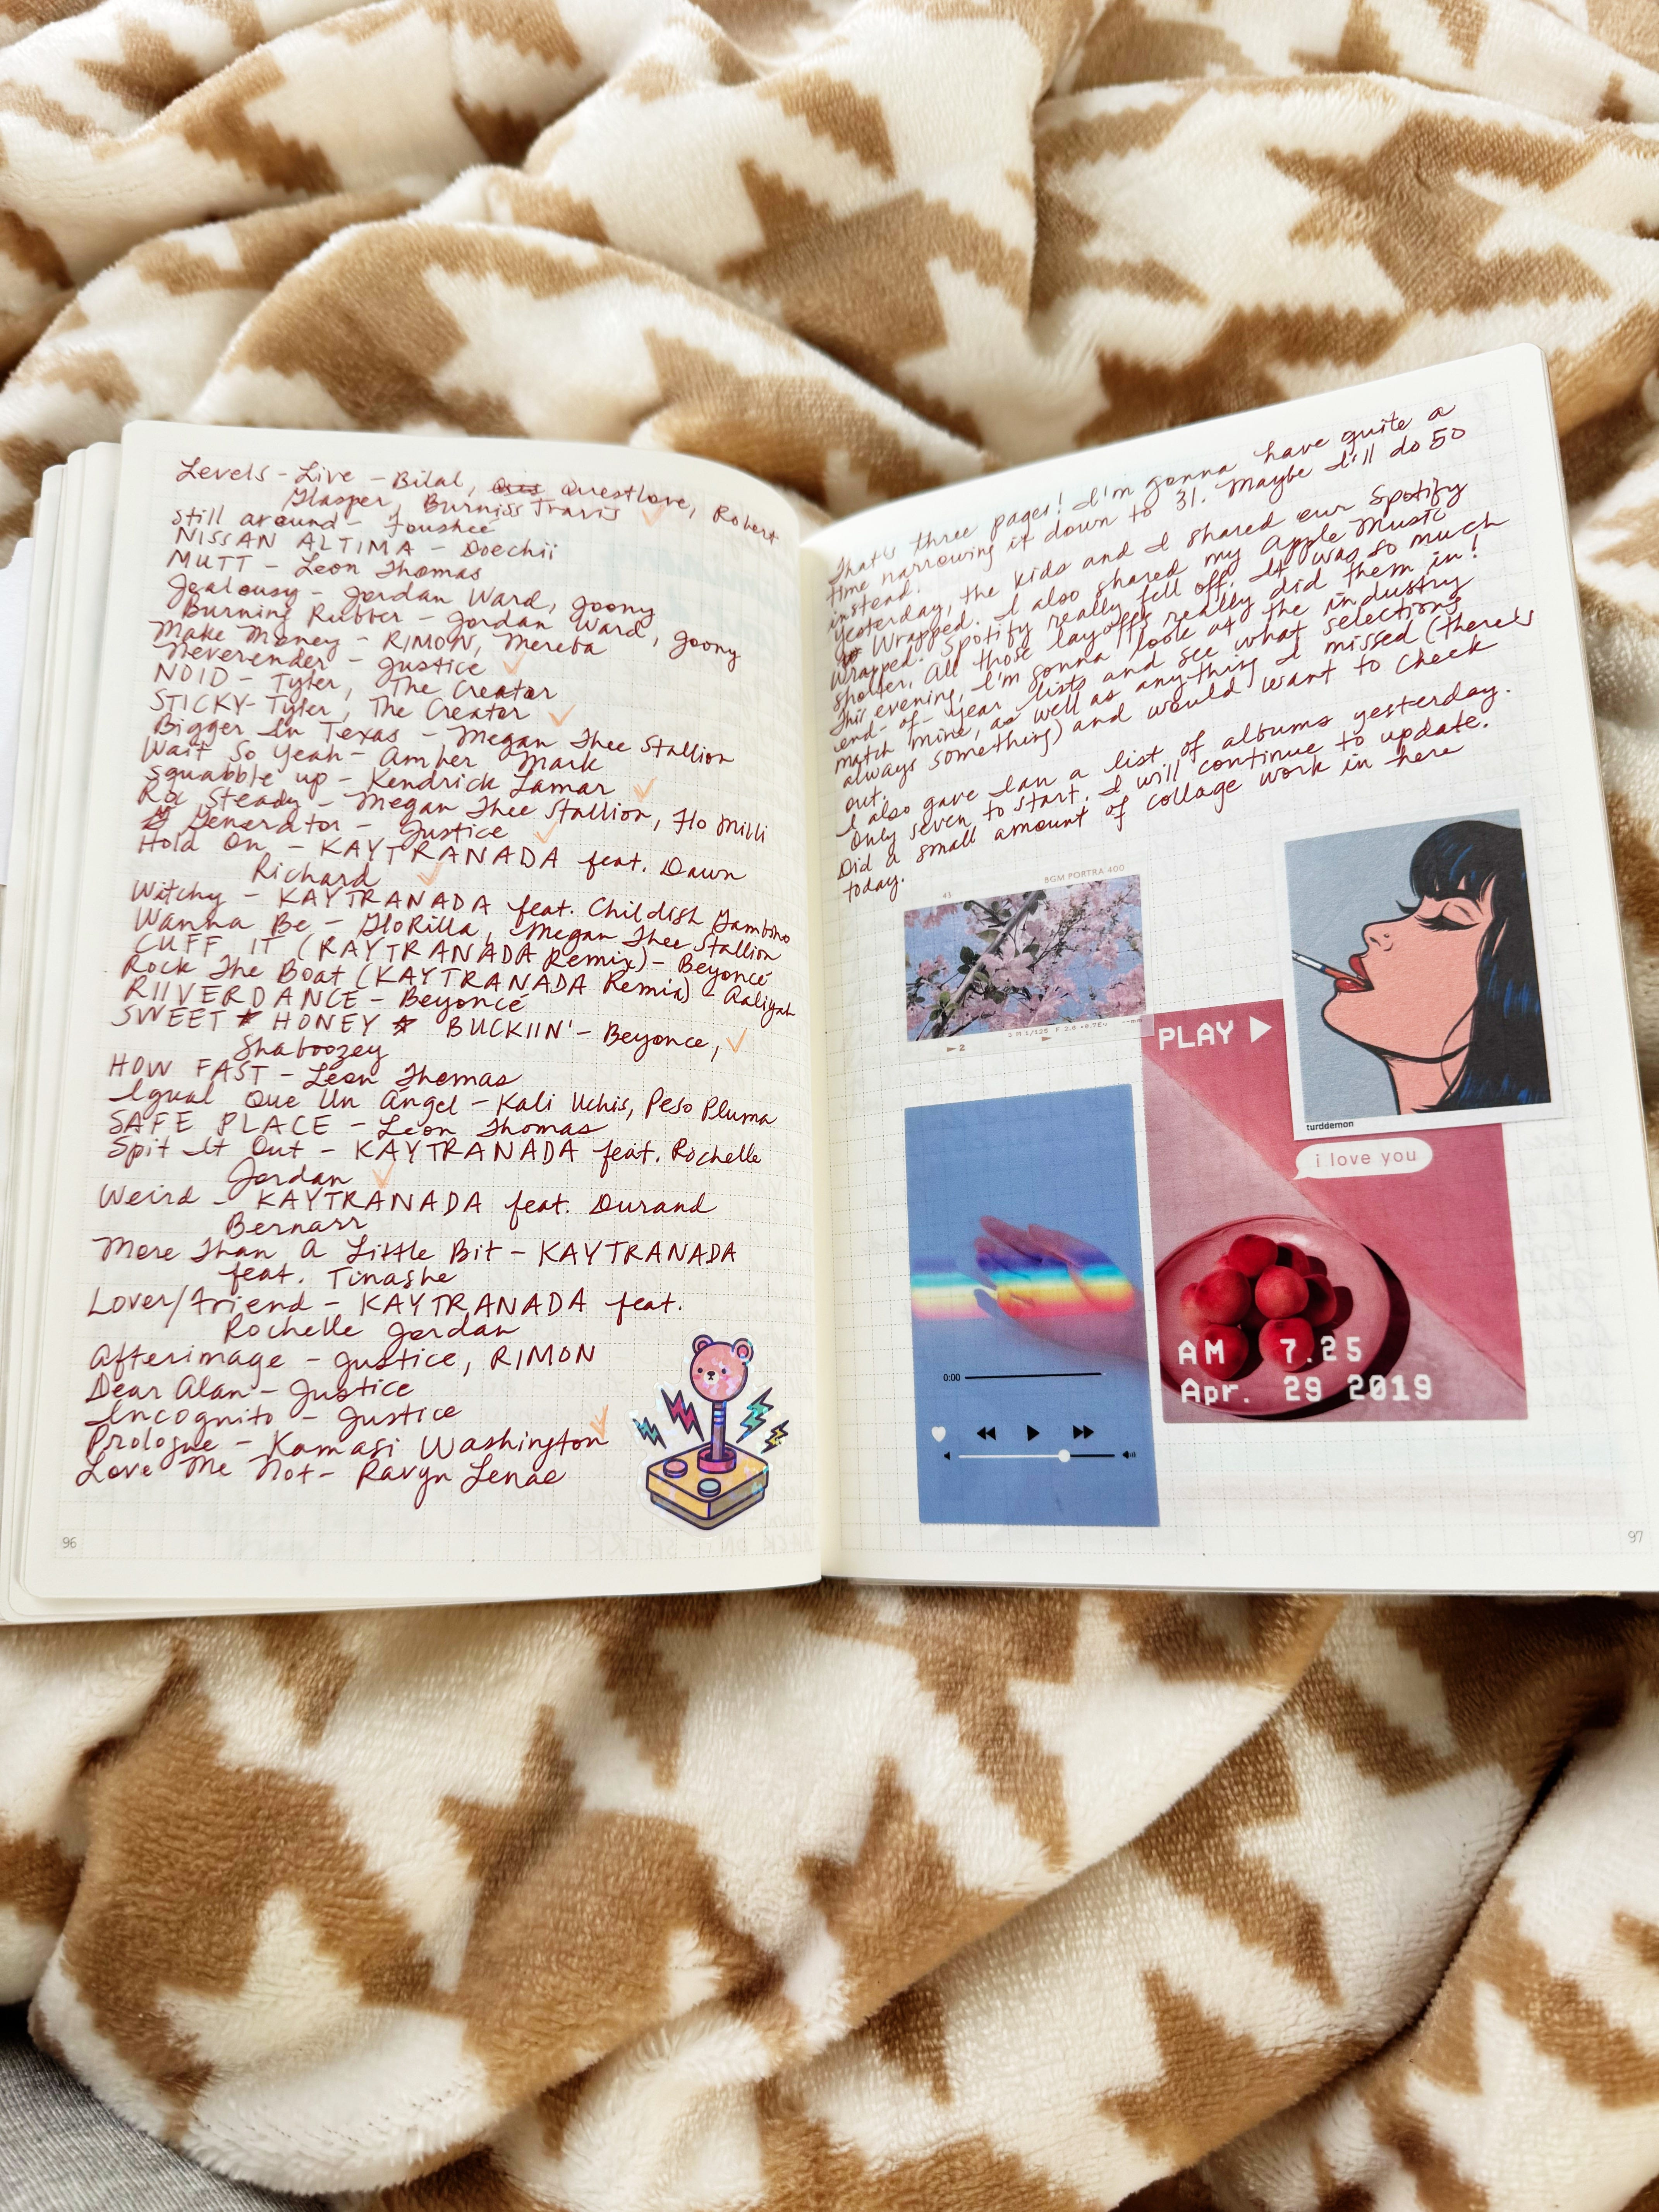 Levels - Live - Bilal, Questlove, Robert
Glasper, Burniss Travis ✓
Still around - Fousheé
NISSAN ALTIMA - Doechii
MUTT - Leon Thomas
Jealousy - Jordan Ward, Joony
Burning Rubber - Jordan Ward, Joony
Make Money - RIMON, Mereba
Neverender - Justice ✓
NOID - Tyler, The Creator
STICKY - Tyler, The Creator ✓
Bigger In Texas - Megan Thee Stallion
Wait So Yeah - Amber Mark
squabble up - Kendrick Lamar ✓
Roc Steady - Megan Thee Stallion, Flo Milli
Generator - Justice ✓
Hold On - KAYTRANADA feat. Dawn
Richard ✓
Witchy - KAYTRANADA feat. Childish Gambino
Wanna Be - GloRilla, Megan Thee Stallion
CUFF IT (KAYTRANADA Remix) - Beyoncé
Rock The Boat (KAYTRANADA Remix) - Aaliyah
RIIVERDANCE - Beyoncé
SWEET ★ HONEY ★ BUCKIIN' - Beyonce, ✓
Shaboozey
HOW FAST - Leon Thomas
Igual Que Un Ángel - Kali Uchis, Peso Pluma
SAFE PLACE - Leon Thomas
Spit It Out - KAYTRANADA feat. Rochelle
Jordan ✓
Weird - KAYTRANADA feat. Durand
Bernarr
More Than A Little Bit - KAYTRANADA
feat. Tinashe
Lover/Friend - KAYTRANADA feat.
Rochelle Jordan
Afterimage - Justice, RIMON
Dear Alan - Justice
Incognito - Justice
Prologue - Kamasi Washington ✓
Love Me Not - Ravyn Lenae
96
That's three pages! I'm gonna have quite a
time narrowing it down to 31. Maybe I'll do 50
instead.
Yesterday, the kids and I shared our Spotify
Wrapped. I also shared my Apple Music
Wrapped. Spotify really fell off. It was so much
shorter. All those layoffs really did them in!
This evening, I'm gonna look at the industry
end-of-year lists and see what selections
match mine, as well as anything I missed (there's
always something) and would want to check
out.
I also gave Ian a list of albums yesterday.
Only seven to start. I will continue to update.
Did a small amount of collage work in here
today.
BGM PORTRA 400
41
S M 1/125 F 2.8 +0.7EV
2
PLAY
turddemon
i love you
AM 7.25
Apr. 29 2019
0:00
97